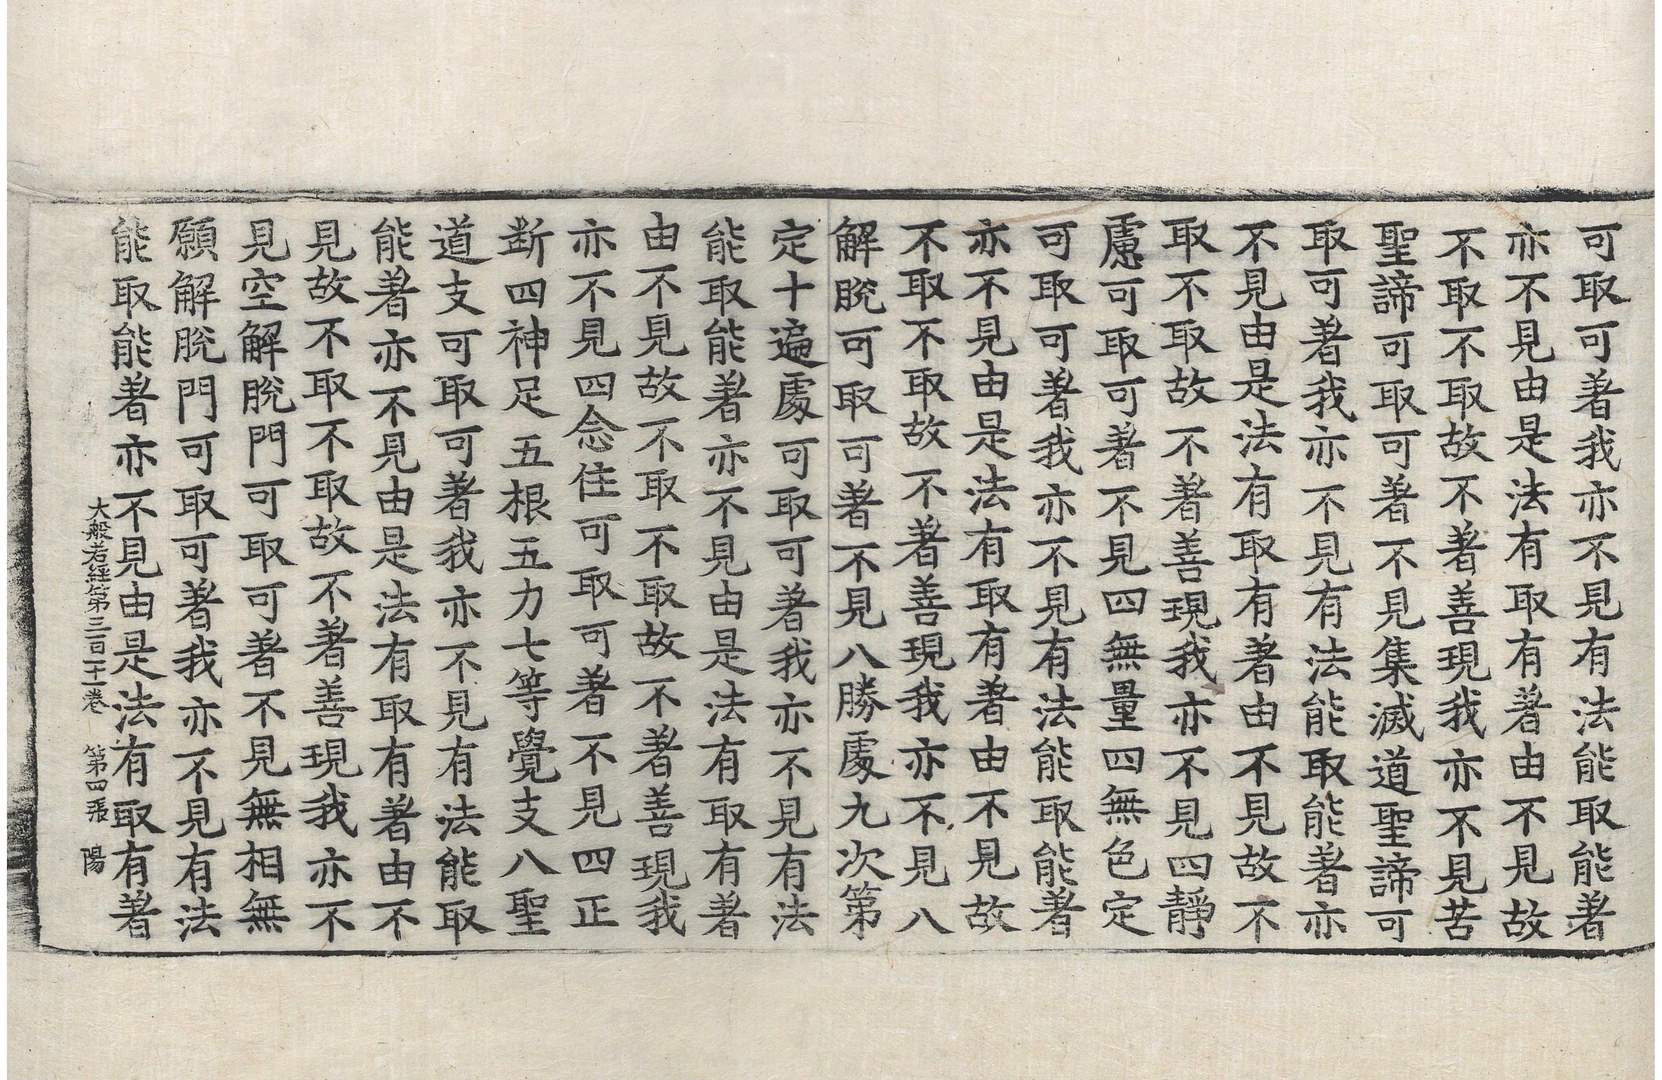 可取可著我亦不見有法能取能著
亦不見由是法有取有著由不見故
不取不取故不著善現我亦不見苦
聖諦可取可著不見集滅道聖諦可
取可著我亦不見有法能取能著亦
不見由是法有取有著由不見故不
取不取故不著善現我亦不見四靜
慮可取可著不見四無量四無色定
可取可著我亦不見有法能取能著
亦不見由是法有取有著由不見故
不取不取故不著善現我亦不見八
解脫可取可著不見八勝處九次第
定十遍處可取可著我亦不見有法
能取能著亦不見由是法有取有著
由不見故不取不取故不著善現我
亦不見四念住可取可著不見四正
断四神足五根五力七等覺支八聖
道支可取可著我亦不見有法能取
能著亦不見由是法有取有著由不
見故不取不取故不著善現我亦不
見空解脫門可取可著不見無相無
願解脫門可取可著我亦不見有法
能取能著亦不見由是法有取有著
大般若經第三百二十卷 第四張 陽